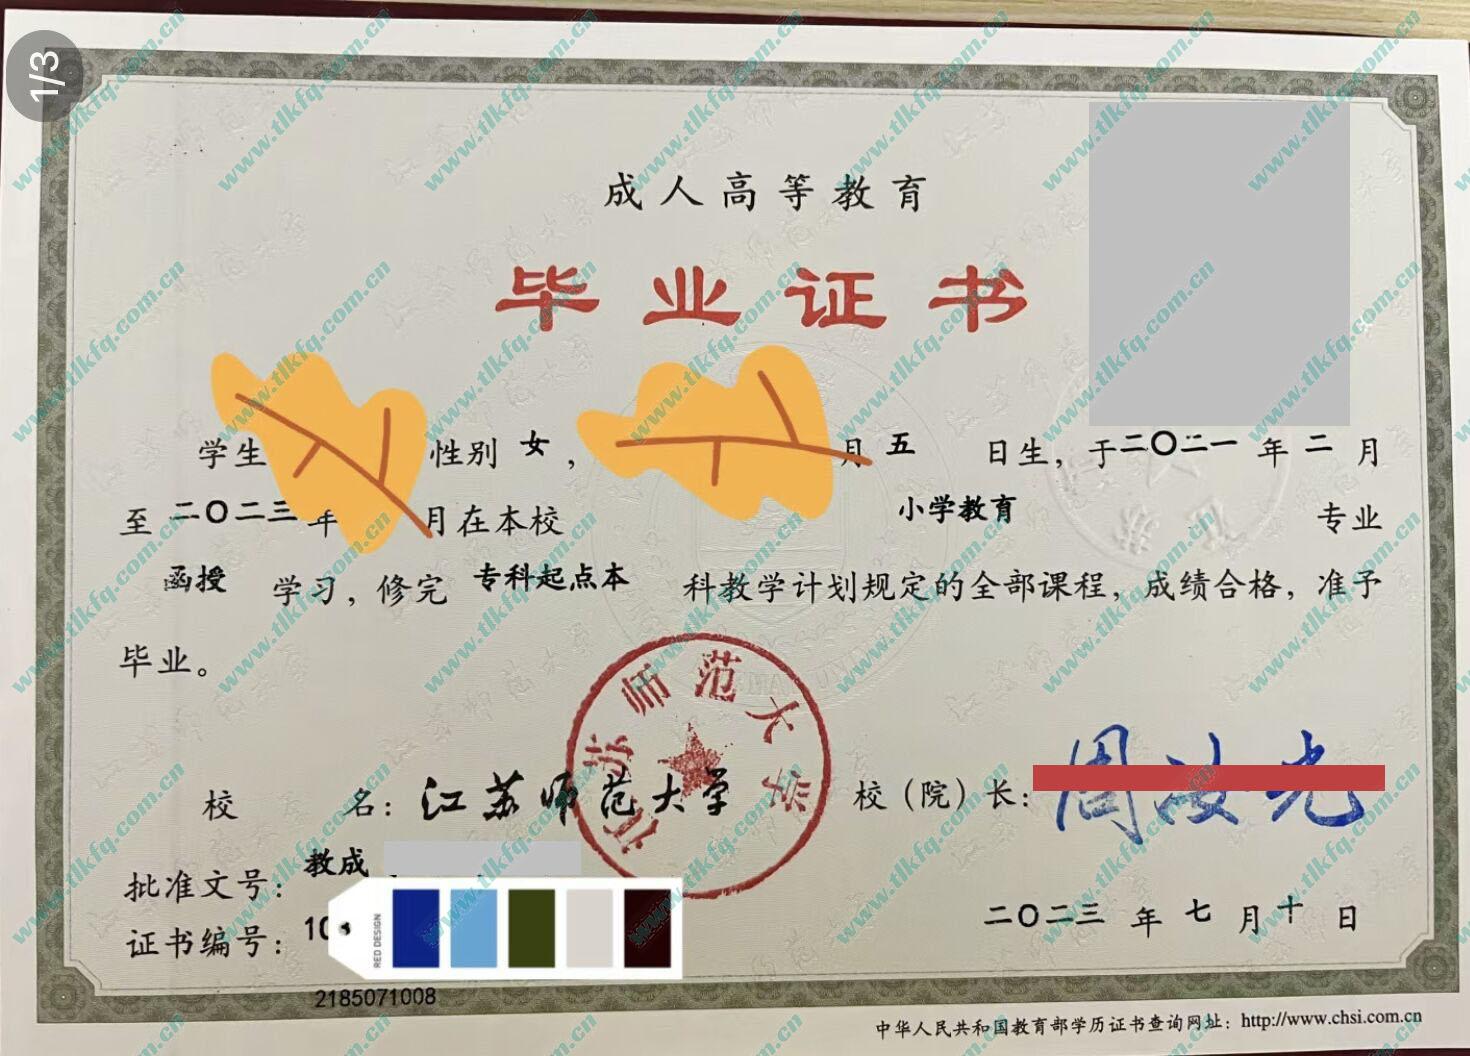 1/3
成人高等教育
毕业证书
学生 性别 女, 月 五 日生, 于二〇二一 年 二 月
至 二〇二三 年 月在本校 小学教育 专业
函授 学习, 修完 专科起点本 科教学计划规定的全部课程, 成绩合格, 准予
毕业。
江苏师范大学
校 名: 江苏师范大学 校（院）长:
批准文号: 教成
证书编号: 10
RED DESIGN
2185071008
二〇二三 年 七 月 十 日
中华人民共和国教育部学历证书查询网址: http://www.chsi.com.cn
www.tlkfq.com.cn